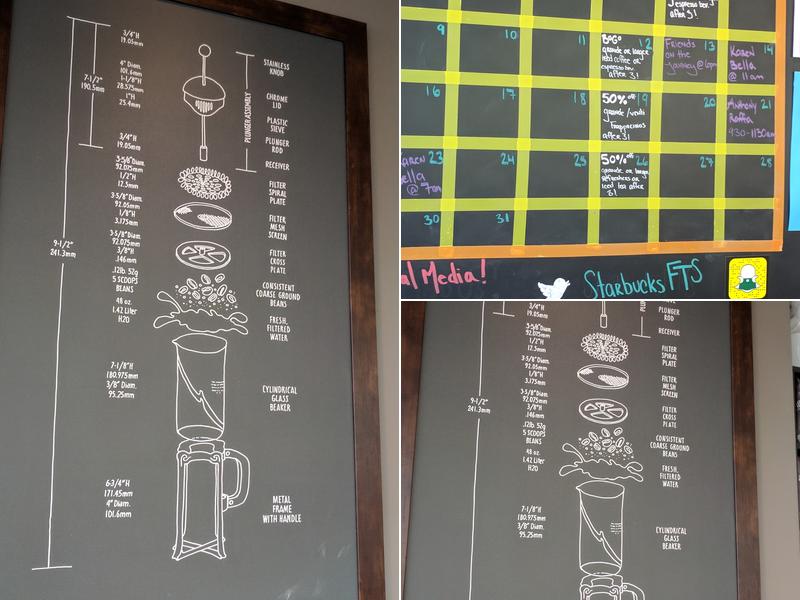 3/4"H
19.05mm
4" Diam.
101.6mm
1-1/8"H
28.575mm
1"H
25.4mm
7-1/2"
190.5mm
3/4"H
19.05mm
3-5/8"Diam.
92.075mm
1/2"H
12.5mm
3-5/8"Diam.
92.05mm
1/8"H
3.175mm
3-5/8"Diam.
92.075mm
3/8"H
.146mm
9-1/2"
241.3mm
.12lb. 52g
5 SCOOPS
BEANS
48 oz.
1.42 Liter
H2O
7-1/8"H
180.975mm
3/8" Diam.
95.25mm
6-3/4"H
171.45mm
4" Diam.
101.6mm
PLUNGER ASSEMBLY
STAINLESS
KNOB
CHROME
LID
PLASTIC
SIEVE
PLUNGER
ROD
RECEIVER
FILTER
SPIRAL
PLATE
FILTER
MESH
SCREEN
FILTER
CROSS
PLATE
CONSISTENT
COARSE GROUND
BEANS
FRESH,
FILTERED
WATER
CYLINDRICAL
GLASS
BEAKER
METAL
FRAME
WITH HANDLE
espresso bev
after 3!
9
10
11
12
BOGO
grande or larger
iced coffee or
espresso bev.
after 3!
13
Friends
on the
Journey @ 6pm
14
Karen
Bella
@ 11am
16
17
18
19
50% off
grande/venti
Frappuccinos
after 3!
20
21
Anthony
Raffa
9:30-11:30am
23
Karen
Bella
@ 7am
24
25
26
50% off
grande or larger
Refreshers or
Iced tea after
3!
27
28
30
31
al Media!
Starbucks FTS
3/4"H
19.05mm
3-5/8"Diam.
92.075mm
1/2"H
12.5mm
3-5/8"Diam.
92.05mm
1/8"H
3.175mm
3-5/8"Diam.
92.075mm
3/8"H
.146mm
9-1/2"
241.3mm
.12lb. 52g
5 SCOOPS
BEANS
48 oz.
1.42 Liter
H2O
7-1/8"H
180.975mm
3/8" Diam.
95.25mm
PLUN
PLUNGER
ROD
RECEIVER
FILTER
SPIRAL
PLATE
FILTER
MESH
SCREEN
FILTER
CROSS
PLATE
CONSISTENT
COARSE GROUND
BEANS
FRESH,
FILTERED
WATER
CYLINDRICAL
GLASS
BEAKER